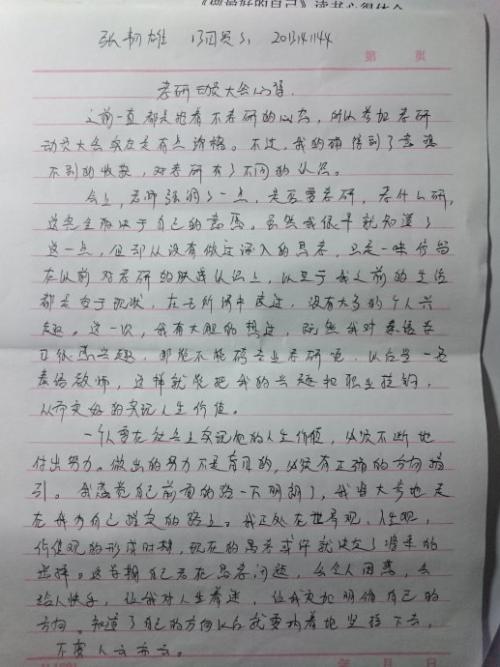 《做最好的自己》读书心得体会
张韧雄 20131411144
第 页
考研动员大会心得
之前一直都是抱着不考研的心态,所以参加考研
动员大会实在是有点 。不过,我的确得到了意料
不到的收获,对考研有了不同的认识。
会上,老师强调了一点,是否要考研,考什么研,
这完全取决于自己的意愿。虽然我很早就知道了
这一点,但却从没有做过深入的思考,只是一味停留
在以前对考研的肤浅认识上,以至于我之前的生活
都是安于现状,在无所谓中度过,没有太多的个人兴
趣。这一次,我有大胆的想法,既然我对英语是
可 感兴趣,那能不能跨专业考研呢,以后当一名
英语教师,这样就能把我的兴趣和职业挂钩,
从而更好的实现人生价值。
一个人要在社会上实现他的人生价值,必须不断地
付出努力。做出的努力不是盲目的,必须有正确的方向指
引。我感觉自己前面的路一下明朗了,我骑大步地走
在我为自己 的路上。我正处在世界观,人生观,
价值观的形成时期,现在的思考或许就决定了将来的
选择。这导师自己去 思考问题,会令人困惑,会
给人快乐,让我对人生着迷,让我更加明确自己的
方向。知道了自己的方向以后我就要执着地坚持下去,
不要人云亦云。
年 月 日